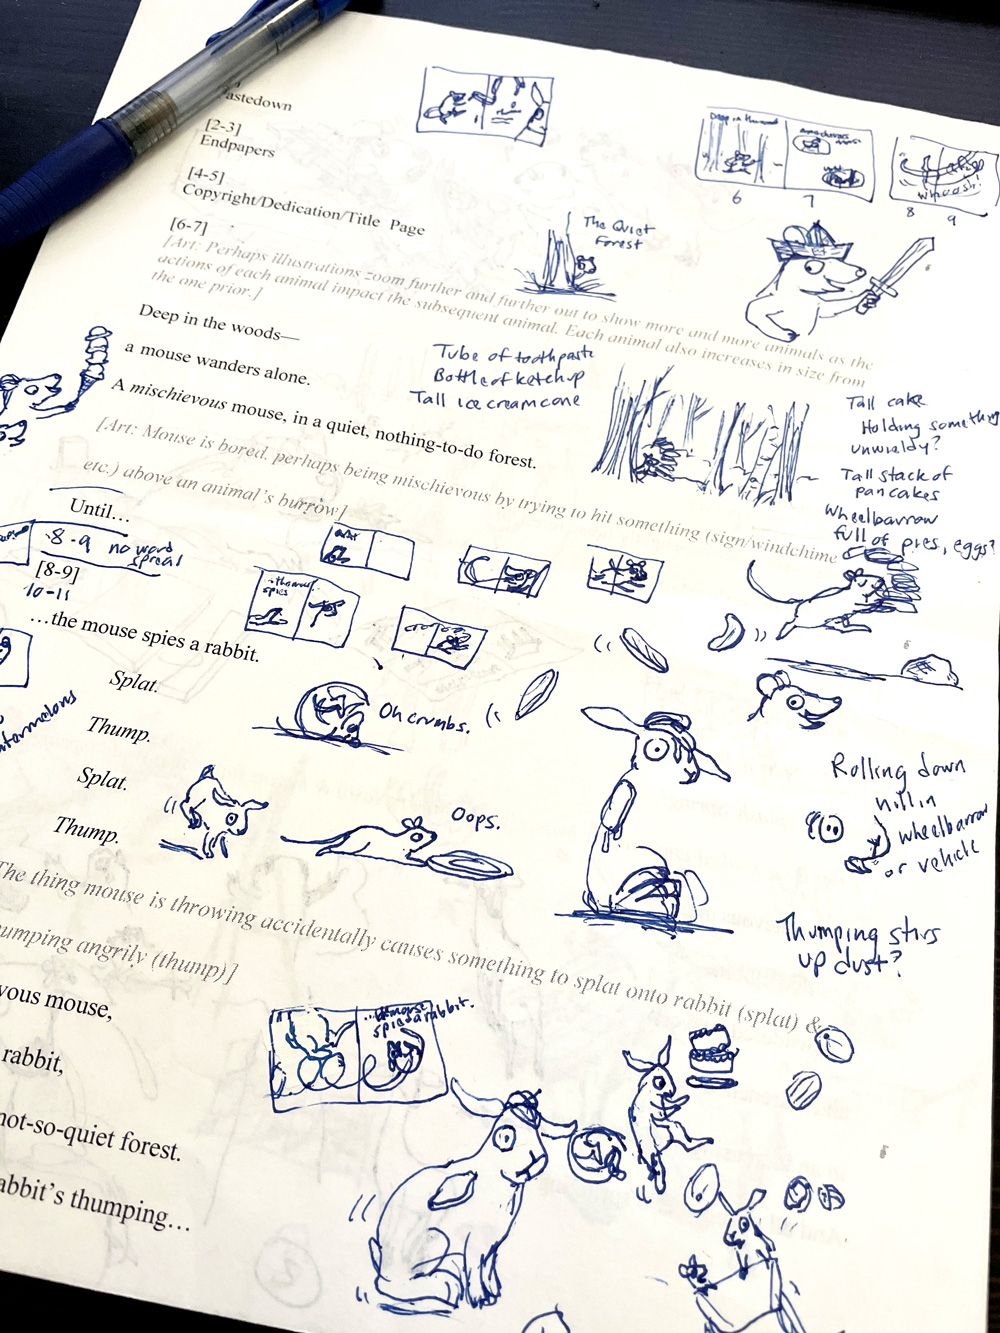 astedown
[2-3]
Endpapers
[4-5]
Copyright/Dedication/Title Page
[6-7]
[Art: Perhaps illustrations zoom further and further out to show more and more animals as the
actions of each animal impact the subsequent animal. Each animal also increases in size from
the one prior.]
6
7
8
9
Deep in the wood
whoosh!
The Quiet
Forest
Deep in the woods—
a mouse wanders alone.
A mischievous mouse, in a quiet, nothing-to-do forest.
Tube of toothpaste
Bottle of ketchup
Tall ice cream cone
Tall cake
Holding something
unwieldy?
Tall stack of
pancakes
Wheelbarrow
full of pies, eggs?
[Art: Mouse is bored. perhaps being mischievous by trying to hit something (sign/windchime
etc.) above an animal's burrow]
Until…
8-9 no word
spread
[8-9]
10-11
…the mouse spies a rabbit.
Splat.
Thump.
Splat.
Thump.
Oh crumbs.
Oops.
Rolling down
hill in
wheelbarrow
or vehicle
Thumping stirs
up dust?
The thing mouse is throwing accidentally causes something to splat onto rabbit (splat) &
umping angrily (thump)]
...the mouse
spies a rabbit.
vous mouse,
rabbit,
not-so-quiet forest.
abbit's thumping…